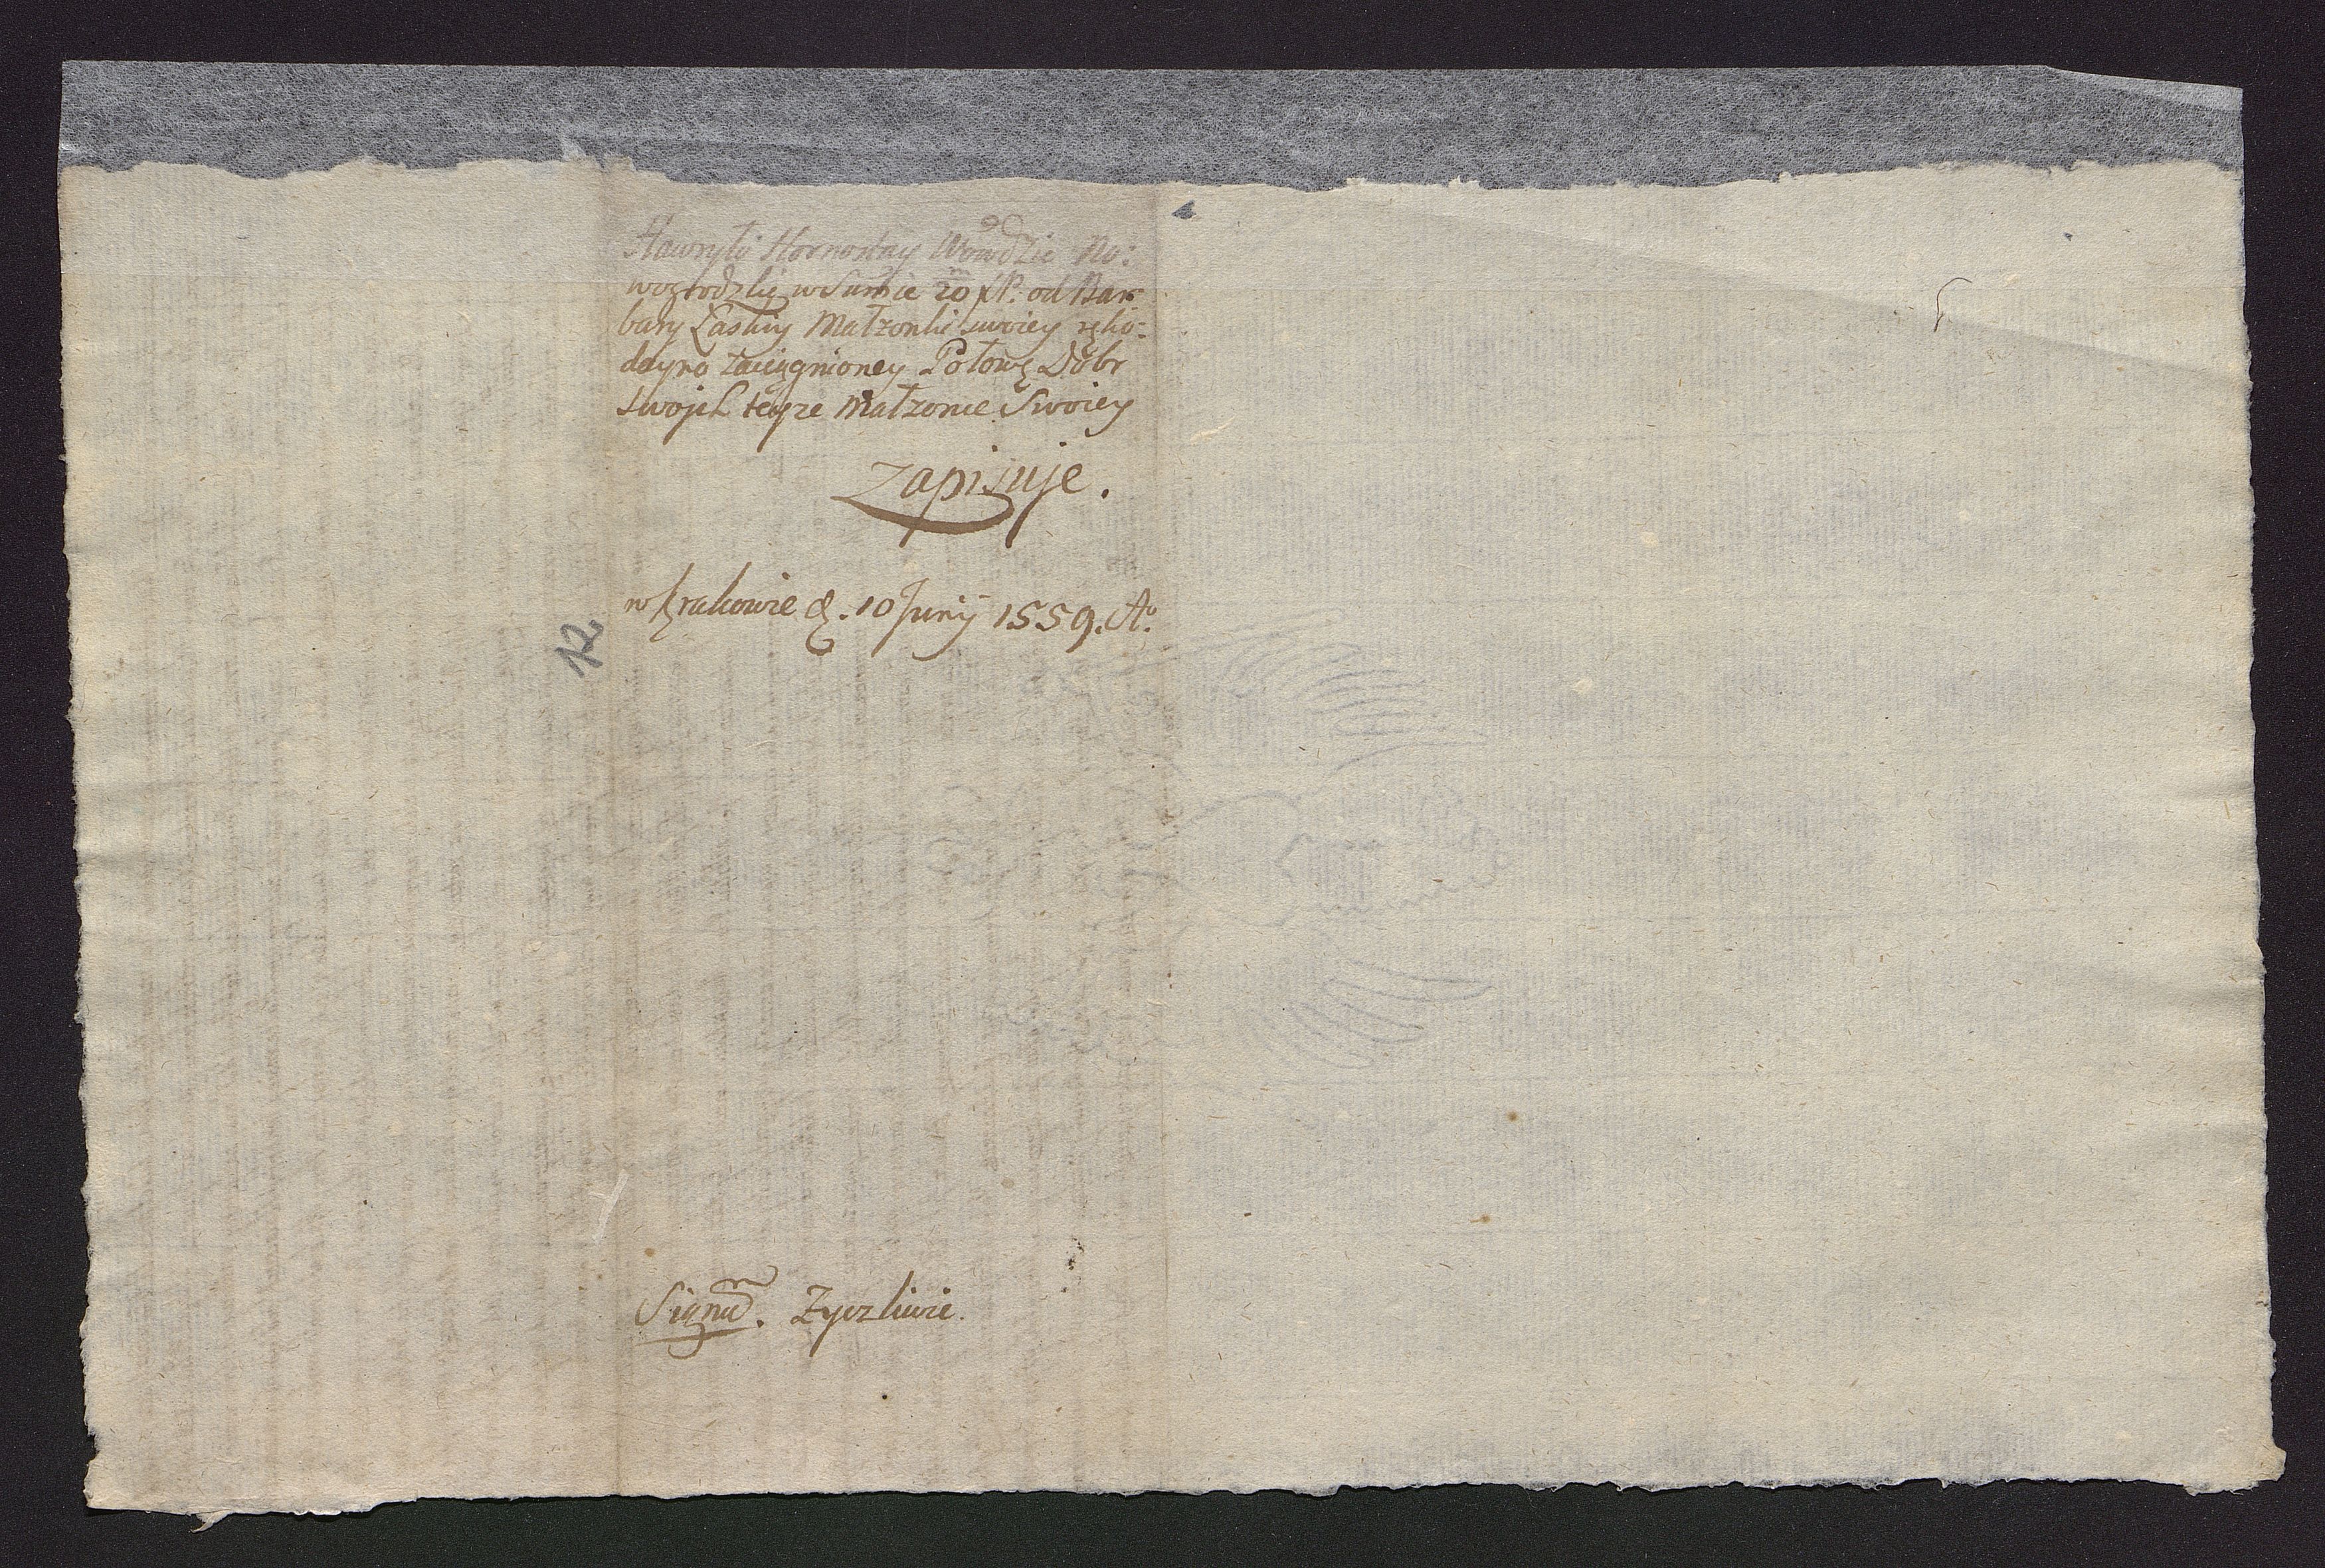 Hawryło Hornostay Wowdzic No:
wogrodzki w Sumie 20 od Bar
bary Łaskiy Małzonki swoiey ręko:
dayno zaciągnioney Połowę Dóbr
swojch teyże Małzonce Swoiey
zapisuje.
w Krakowie d. 10 Junij 1559. Ao.
12.
Signu. Zyczliwie.